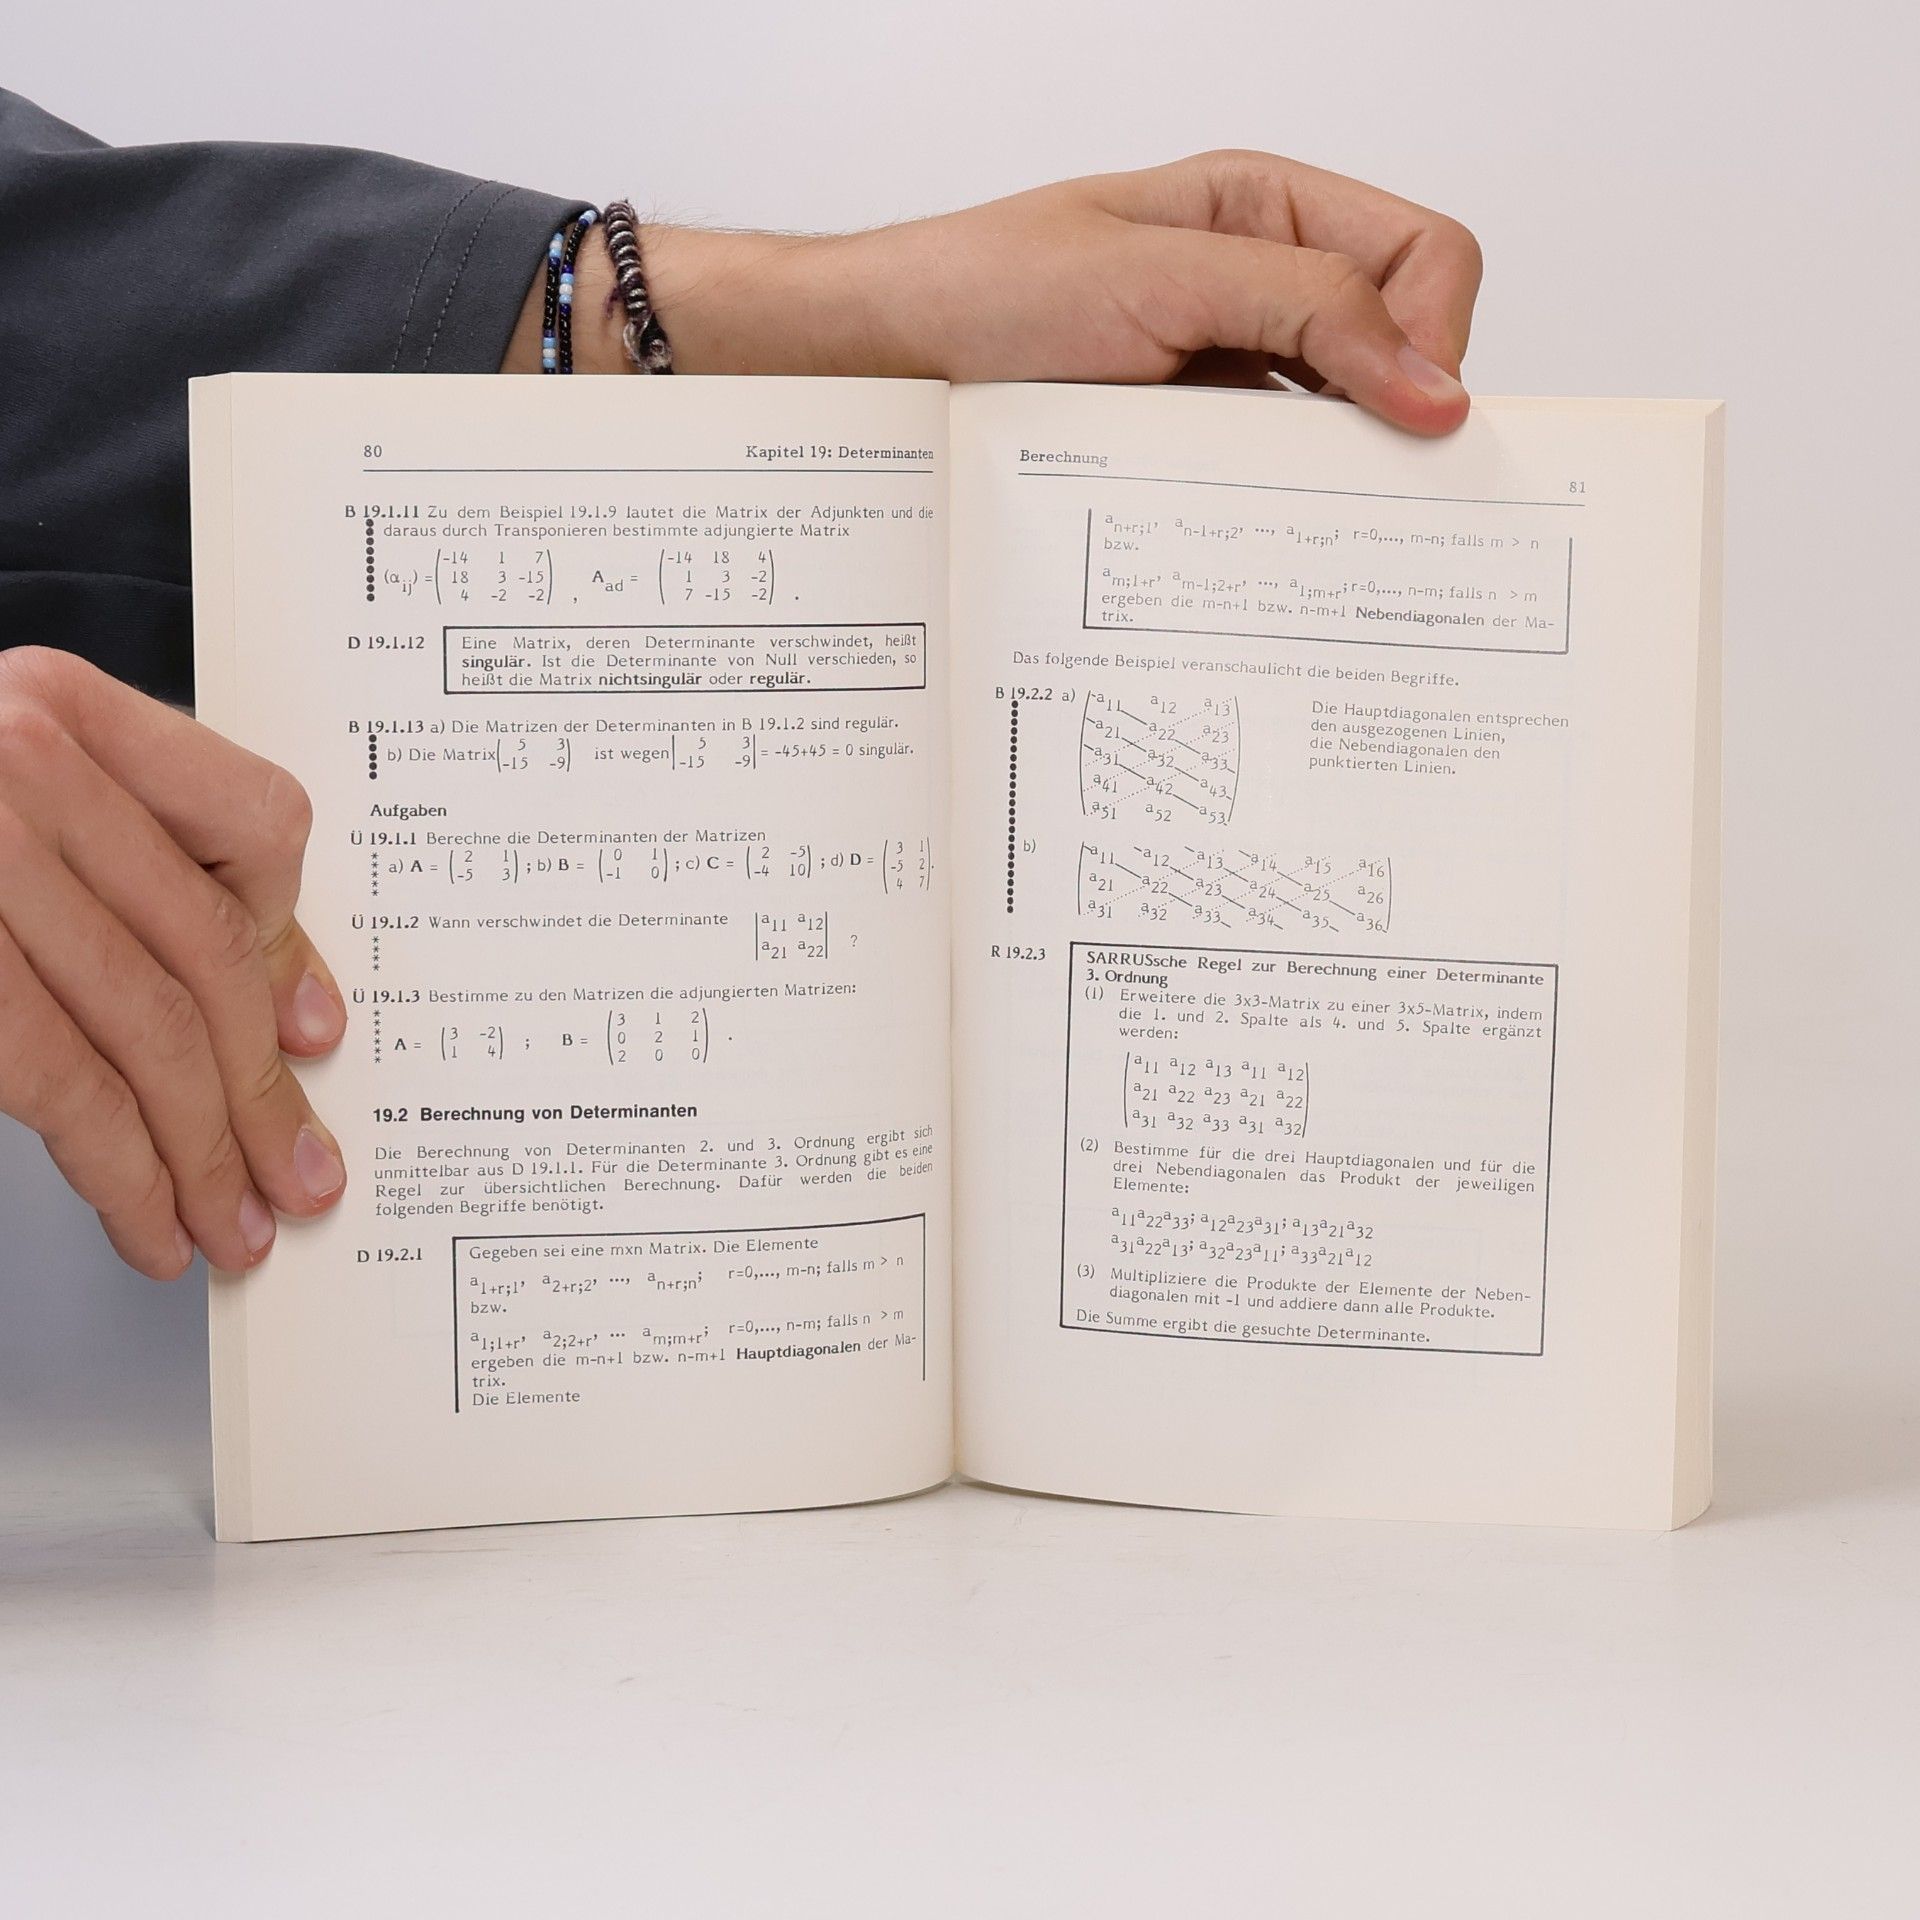 80 Kapitel 19: Determinanten
B 19.1.11 Zu dem Beispiel 19.1.9 lautet die Matrix der Adjunkten und die
daraus durch Transponieren bestimmte adjungierte Matrix
-14 1 7 -14 18 4
(αij) = 18 3 -15 , Aad = 1 3 -2 .
4 -2 -2 7 -15 -2
D 19.1.12 Eine Matrix, deren Determinante verschwindet, heißt
singulär. Ist die Determinante von Null verschieden, so
heißt die Matrix nichtsingulär oder regulär.
B 19.1.13 a) Die Matrizen der Determinanten in B 19.1.2 sind regulär.
5 3 5 3
b) Die Matrix ist wegen = -45+45 = 0 singulär.
-15 -9 -15 -9
Aufgaben
Ü 19.1.1 Berechne die Determinanten der Matrizen
2 1 0 1 2 -5 3 1
a) A = ; b) B = ; c) C = ; d) D = -5 2 .
-5 3 -1 0 -4 10 4 7
Ü 19.1.2 Wann verschwindet die Determinante a11 a12
a21 a22 ?
Ü 19.1.3 Bestimme zu den Matrizen die adjungierten Matrizen:
3 -2 3 1 2
A = ; B = 0 2 1 .
1 4 2 0 0
19.2 Berechnung von Determinanten
Die Berechnung von Determinanten 2. und 3. Ordnung ergibt sich
unmittelbar aus D 19.1.1. Für die Determinante 3. Ordnung gibt es eine
Regel zur übersichtlichen Berechnung. Dafür werden die beiden
folgenden Begriffe benötigt.
D 19.2.1 Gegeben sei eine mxn Matrix. Die Elemente
a1+r;1, a2+r;2, ..., an+r;n; r=0,..., m-n; falls m > n
bzw.
a1;1+r, a2;2+r, ... am;m+r; r=0,..., n-m; falls n > m
ergeben die m-n+1 bzw. n-m+1 Hauptdiagonalen der Ma-
trix.
Die Elemente
Berechnung 81
an+r;1, an-1+r;2, ..., a1+r;n; r=0,..., m-n; falls m > n
bzw.
am;1+r, am-1;2+r, ..., a1;m+r; r=0,..., n-m; falls n > m
ergeben die m-n+1 bzw. n-m+1 Nebendiagonalen der Ma-
trix.
Das folgende Beispiel veranschaulicht die beiden Begriffe.
B 19.2.2 a) a11 a12 a13
a21 a22 a23
a31 a32 a33
a41 a42 a43
a51 a52 a53
Die Hauptdiagonalen entsprechen
den ausgezogenen Linien,
die Nebendiagonalen den
punktierten Linien.
b) a11 a12 a13 a14 a15 a16
a21 a22 a23 a24 a25 a26
a31 a32 a33 a34 a35 a36
R 19.2.3 SARRUSsche Regel zur Berechnung einer Determinante
3. Ordnung
(1) Erweitere die 3x3-Matrix zu einer 3x5-Matrix, indem
die 1. und 2. Spalte als 4. und 5. Spalte ergänzt
werden:
a11 a12 a13 a11 a12
a21 a22 a23 a21 a22
a31 a32 a33 a31 a32
(2) Bestimme für die drei Hauptdiagonalen und für die
drei Nebendiagonalen das Produkt der jeweiligen
Elemente:
a11a22a33; a12a23a31; a13a21a32
a31a22a13; a32a23a11; a33a21a12
(3) Multipliziere die Produkte der Elemente der Neben-
diagonalen mit -1 und addiere dann alle Produkte.
Die Summe ergibt die gesuchte Determinante.